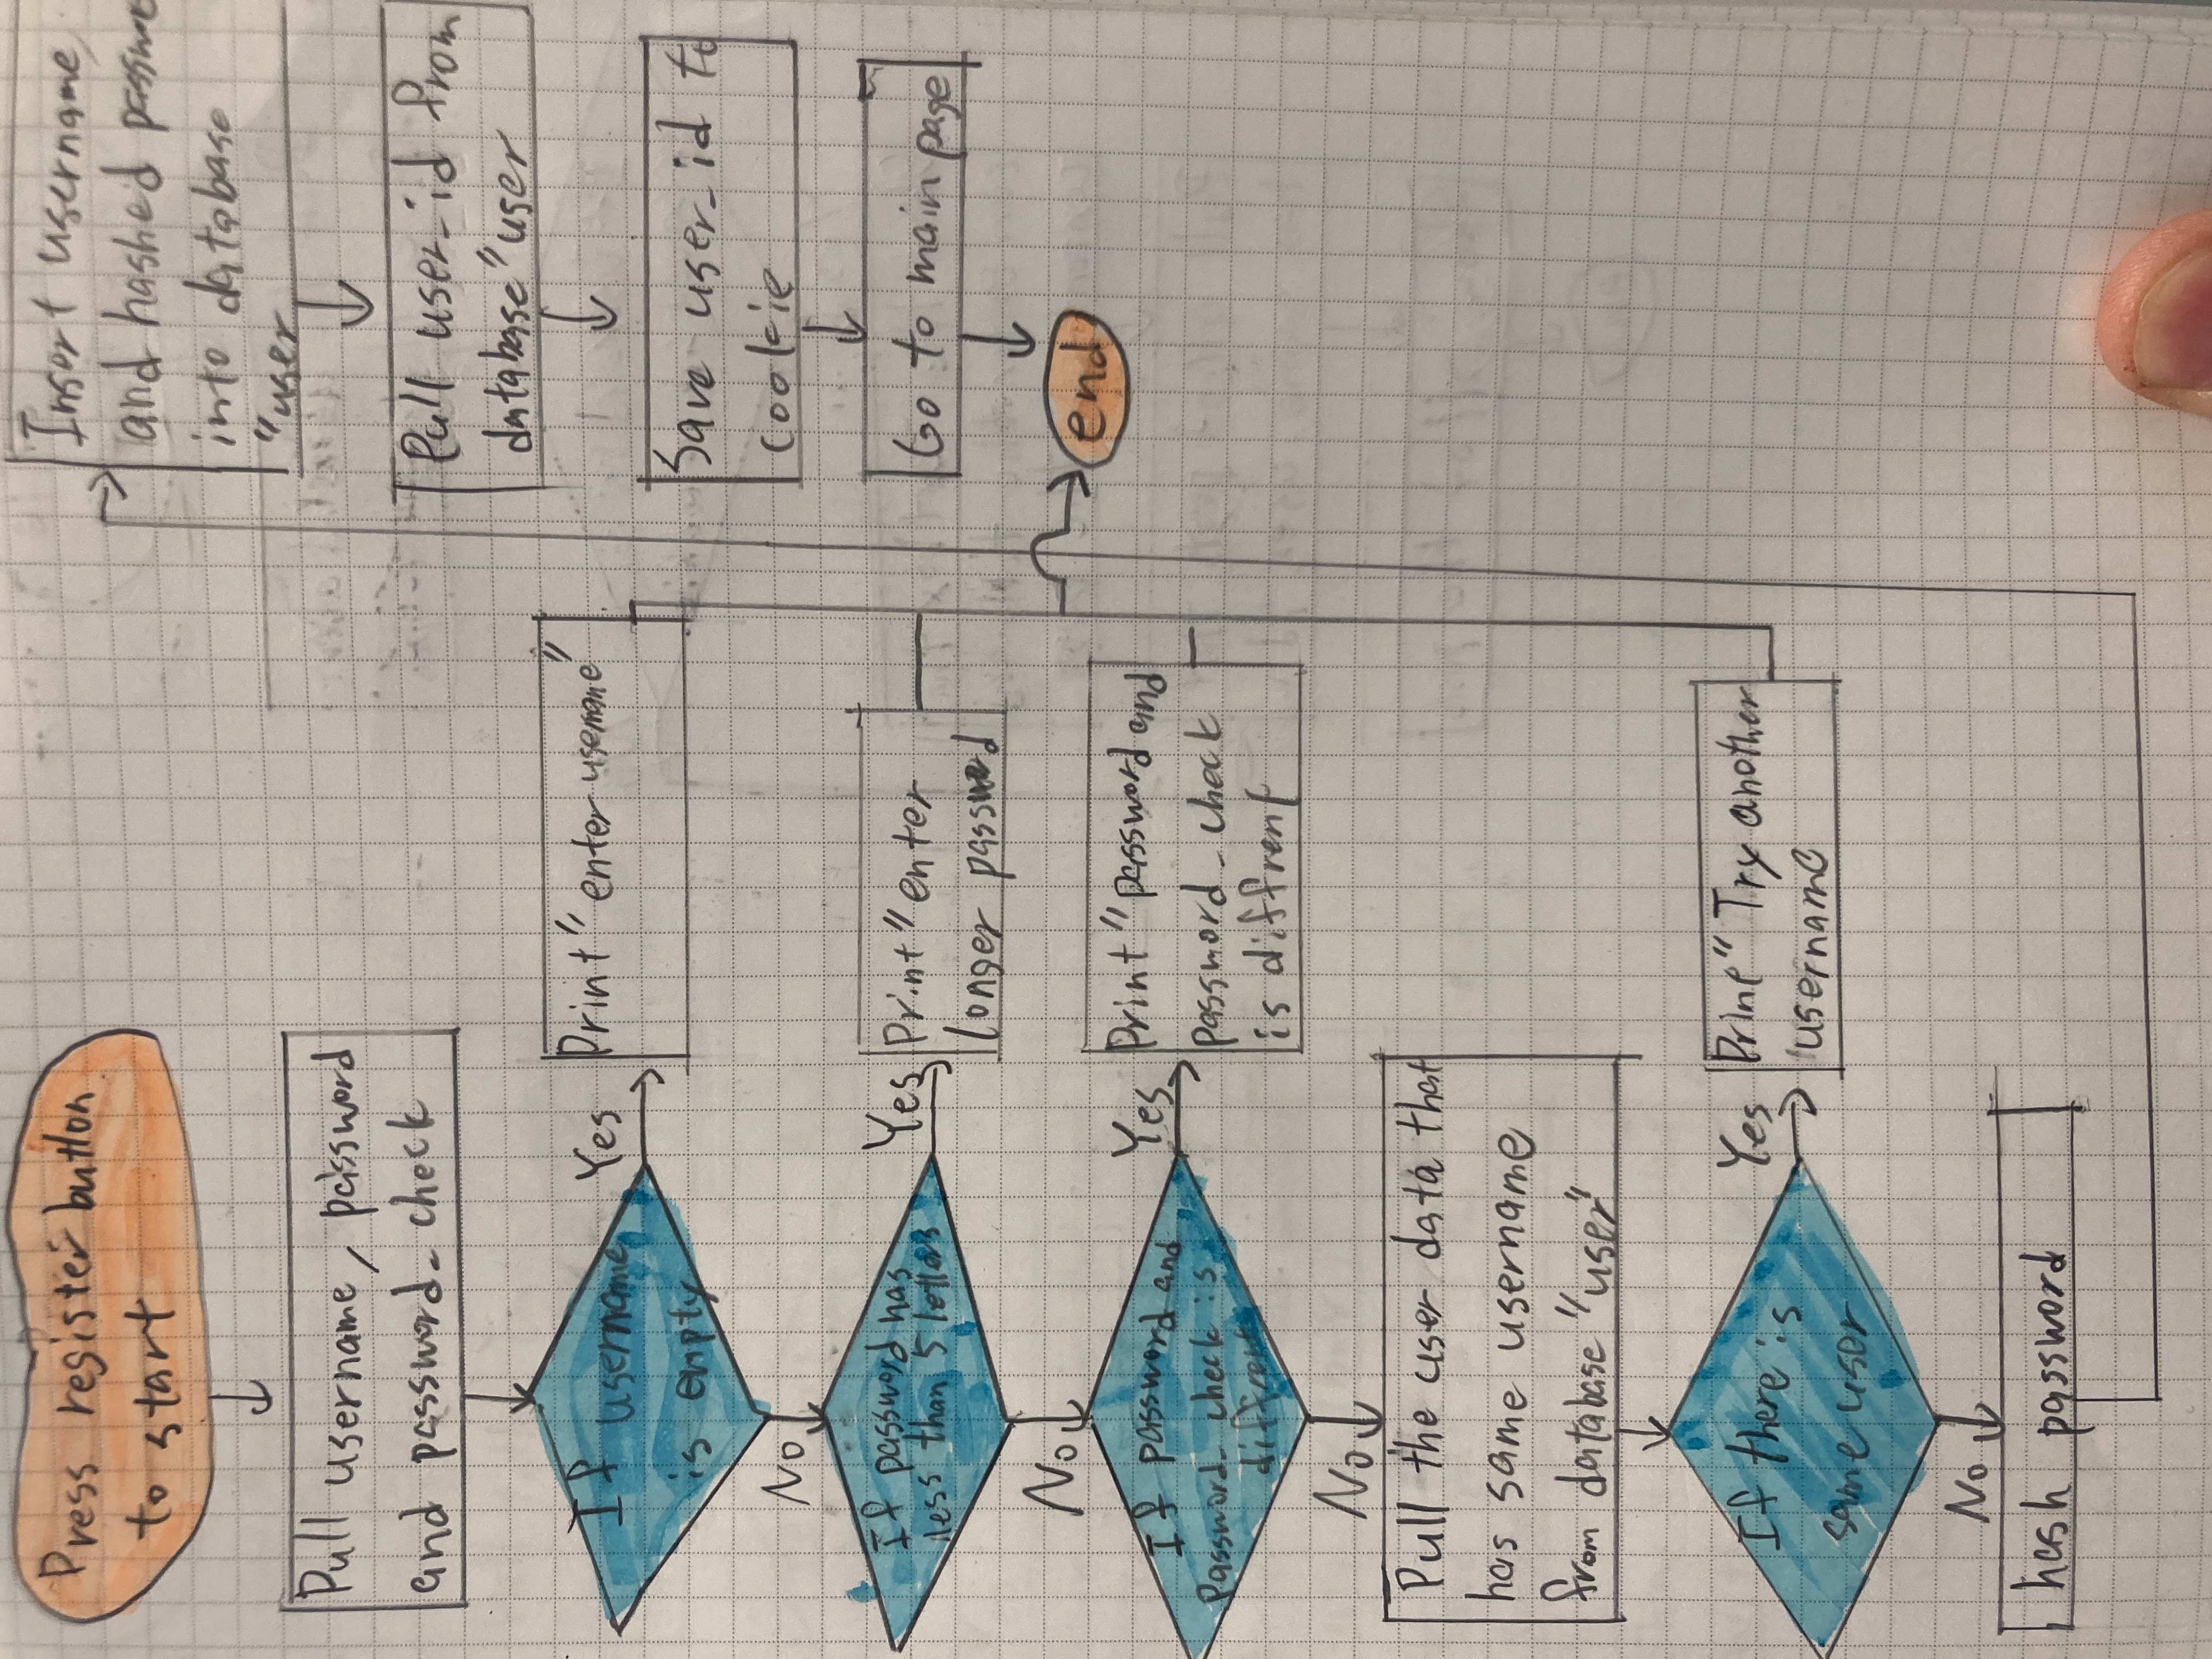 Press register button
to start
Pull username, password
and password_check
If username
is empty
Yes
Print "enter username"
No
If password has
less than 5 letters
Yes
Print "enter
longer password
No
If password and
Password_check is
diffrent
Yes
Print "password and
password_check
is diffrent
No
Pull the user data that
has same username
from database "user"
If there is
same user
Yes
Print" Try another
username
No
hash password
Insert username,
and hashed
into database
"user
Pull user_id from
database "user
Save user_id to
cookie
Go to main page
end